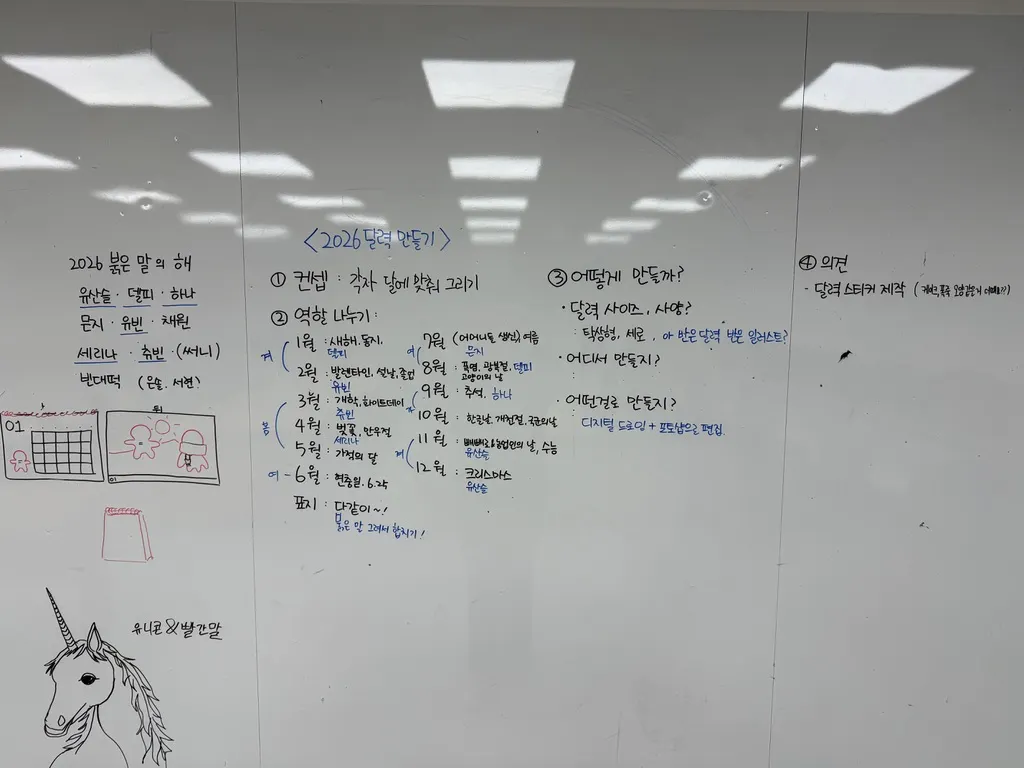 2026 붉은 말의 해
유산슬 · 델피 · 하나
믄지 · 유빈 · 채원
세리나 · 츄빈 · (써니)
빈대떡 (은솔, 서현)
뒤
01
01
유니콘 & 빨간말
<2026 달력 만들기>
① 컨셉 : 각자 달에 맞춰 그리기
② 역할 나누기 :
겨
1월 : 새해, 동지,
델피
2월 : 발렌타인, 설날, 졸업
유빈
봄
3월 : 개학, 화이트데이
츄빈
4월 : 벚꽃, 만우절
세리나
5월 : 가정의 달
여 - 6월 : 현충일, 6.25
표지 : 다같이~!
붉은 말 그려서 합치기!
여
7월 (어머니들 생신) 여름
믄지
8월 : 폭염, 광복절, 델피
고양이의 날
9월 : 추석, 하나
10월 : 한글날, 개천절, 국군의날
겨
11월 : 빼빼로&농업인의 날, 수능
유산슬
12월 : 크리스마스
유산슬
③ 어떻게 만들까?
· 달력 사이즈, 사양?
: 탁상형, 세로, 아 반은 달력 반은 일러스트?
· 어디서 만들지?
· 어떤걸로 만들지?
디지털 드로잉 + 포토샵으로 편집
④ 의견
- 달력 스티커 제작